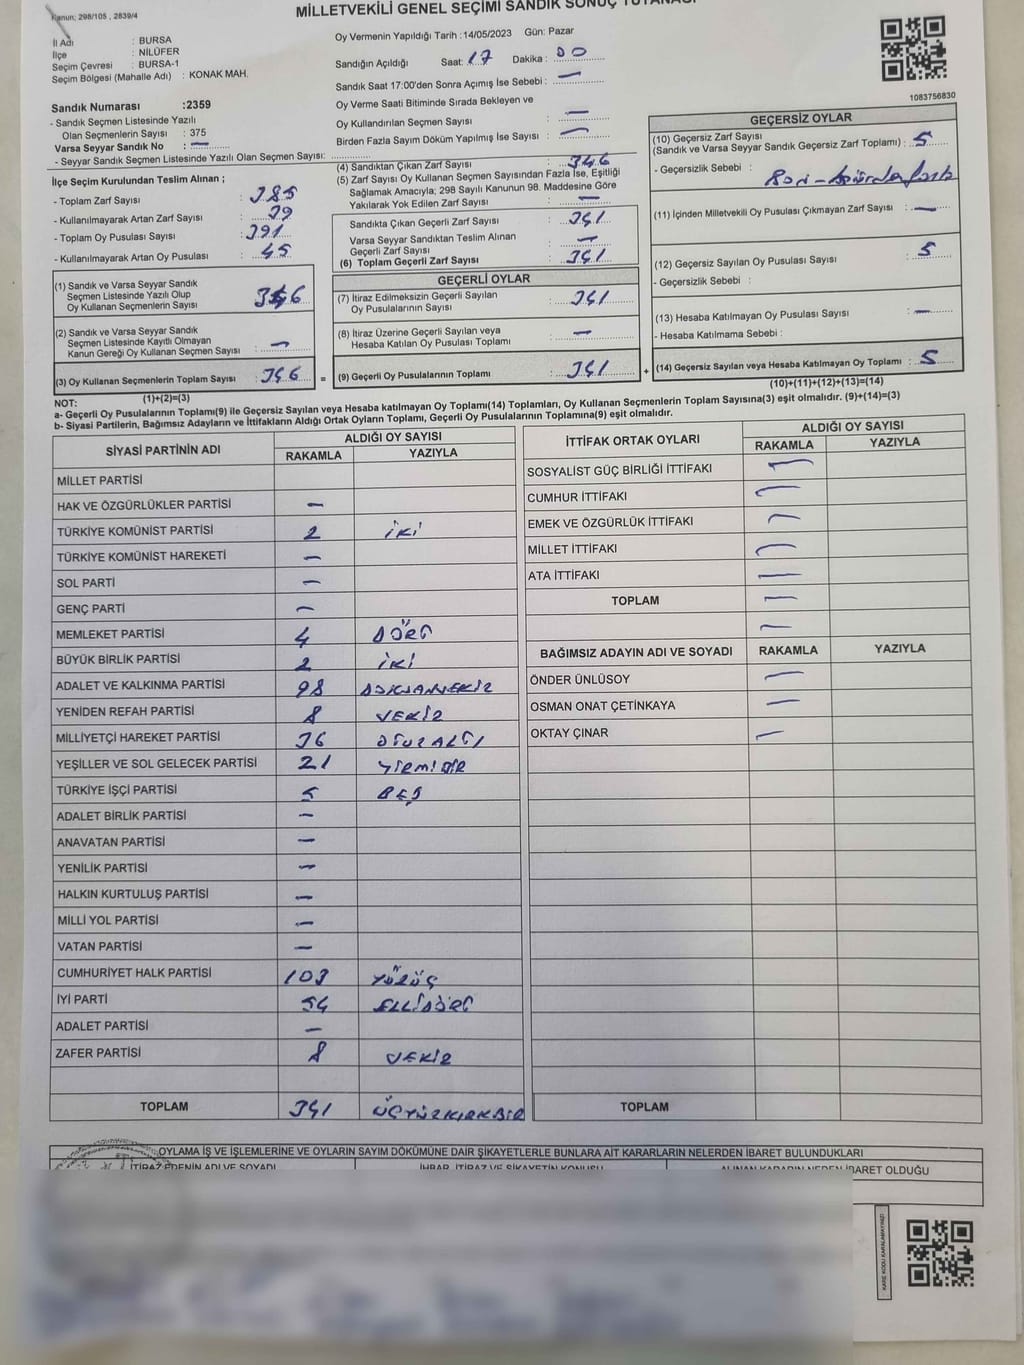 Kanun; 298/105 , 2839/4
MİLLETVEKİLİ GENEL SEÇİMİ SANDIK SONUÇ TUTANAĞI
İl Adı : BURSA
İlçe : NİLÜFER
Seçim Çevresi : BURSA-1
Seçim Bölgesi (Mahalle Adı) : KONAK MAH.
Sandık Numarası :2359
- Sandık Seçmen Listesinde Yazılı
Olan Seçmenlerin Sayısı : 375
Varsa Seyyar Sandık No : —
- Seyyar Sandık Seçmen Listesinde Yazılı Olan Seçmen Sayısı:
Oy Vermenin Yapıldığı Tarih :14/05/2023 Gün: Pazar
Sandığın Açıldığı Saat: 17 Dakika : 00
Sandık Saat 17:00'den Sonra Açımış İse Sebebi : —
Oy Verme Saati Bitiminde Sırada Bekleyen ve
Oy Kullandırılan Seçmen Sayısı : —
Birden Fazla Sayım Döküm Yapılmış İse Sayısı : —
1083756830
İlçe Seçim Kurulundan Teslim Alınan ;
- Toplam Zarf Sayısı : 385
- Kullanılmayarak Artan Zarf Sayısı : 39
- Toplam Oy Pusulası Sayısı : 391
- Kullanılmayarak Artan Oy Pusulası : 45
(1) Sandık ve Varsa Seyyar Sandık
Seçmen Listesinde Yazılı Olup
Oy Kullanan Seçmenlerin Sayısı : 346
(2) Sandık ve Varsa Seyyar Sandık
Seçmen Listesinde Kayıtlı Olmayan
Kanun Gereği Oy Kullanan Seçmen Sayısı : —
(3) Oy Kullanan Seçmenlerin Toplam Sayısı : 346 =
(1)+(2)=(3)
(4) Sandıktan Çıkan Zarf Sayısı : 346
(5) Zarf Sayısı Oy Kullanan Seçmen Sayısından Fazla İse, Eşitliği
Sağlamak Amacıyla; 298 Sayılı Kanunun 98. Maddesine Göre
Yakılarak Yok Edilen Zarf Sayısı : —
Sandıkta Çıkan Geçerli Zarf Sayısı : 341
Varsa Seyyar Sandıktan Teslim Alınan
Geçerli Zarf Sayısı : —
(6) Toplam Geçerli Zarf Sayısı : 341
GEÇERLİ OYLAR
(7) İtiraz Edilmeksizin Geçerli Sayılan
Oy Pusulalarının Sayısı : 341
(8) İtiraz Üzerine Geçerli Sayılan veya
Hesaba Katılan Oy Pusulası Toplamı : —
(9) Geçerli Oy Pusulalarının Toplamı : 341 +
GEÇERSİZ OYLAR
(10) Geçersiz Zarf Sayısı
(Sandık ve Varsa Seyyar Sandık Geçersiz Zarf Toplamı) : 5
- Geçersizlik Sebebi :
(11) İçinden Milletvekili Oy Pusulası Çıkmayan Zarf Sayısı : —
(12) Geçersiz Sayılan Oy Pusulası Sayısı : 5
- Geçersizlik Sebebi :
(13) Hesaba Katılmayan Oy Pusulası Sayısı : —
- Hesaba Katılmama Sebebi :
(14) Geçersiz Sayılan veya Hesaba Katılmayan Oy Toplamı : 5
(10)+(11)+(12)+(13)=(14)
NOT:
a- Geçerli Oy Pusulalarının Toplamı(9) ile Geçersiz Sayılan veya Hesaba katılmayan Oy Toplamı(14) Toplamları, Oy Kullanan Seçmenlerin Toplam Sayısına(3) eşit olmalıdır. (9)+(14)=(3)
b- Siyasi Partilerin, Bağımsız Adayların ve İttifakların Aldığı Ortak Oyların Toplamı, Geçerli Oy Pusulalarının Toplamına(9) eşit olmalıdır.
SİYASİ PARTİNİN ADI ALDIĞI OY SAYISI
RAKAMLA YAZIYLA
MİLLET PARTİSİ
HAK VE ÖZGÜRLÜKLER PARTİSİ —
TÜRKİYE KOMÜNİST PARTİSİ 2 İKİ
TÜRKİYE KOMÜNİST HAREKETİ —
SOL PARTİ —
GENÇ PARTİ —
MEMLEKET PARTİSİ 4 DÖRT
BÜYÜK BİRLİK PARTİSİ 2 İKİ
ADALET VE KALKINMA PARTİSİ 98 DOKSANSEKİZ
YENİDEN REFAH PARTİSİ 8 SEKİZ
MİLLİYETÇİ HAREKET PARTİSİ 36 OTUZALTI
YEŞİLLER VE SOL GELECEK PARTİSİ 21 YİRMİBİR
TÜRKİYE İŞÇİ PARTİSİ 5 BEŞ
ADALET BİRLİK PARTİSİ —
ANAVATAN PARTİSİ —
YENİLİK PARTİSİ —
HALKIN KURTULUŞ PARTİSİ —
MİLLİ YOL PARTİSİ —
VATAN PARTİSİ —
CUMHURİYET HALK PARTİSİ 103 YÜZÜÇ
İYİ PARTİ 54 ELLİDÖRT
ADALET PARTİSİ —
ZAFER PARTİSİ 8 SEKİZ
TOPLAM 341 ÜÇYÜZKIRKBİR
İTTİFAK ORTAK OYLARI ALDIĞI OY SAYISI
RAKAMLA YAZIYLA
SOSYALİST GÜÇ BİRLİĞİ İTTİFAKI —
CUMHUR İTTİFAKI —
EMEK VE ÖZGÜRLÜK İTTİFAKI —
MİLLET İTTİFAKI —
ATA İTTİFAKI —
TOPLAM —
—
BAĞIMSIZ ADAYIN ADI VE SOYADI RAKAMLA YAZIYLA
ÖNDER ÜNLÜSOY —
OSMAN ONAT ÇETİNKAYA —
OKTAY ÇINAR —
TOPLAM
OYLAMA İŞ VE İŞLEMLERİNE VE OYLARIN SAYIM DÖKÜMÜNE DAİR ŞİKAYETLERLE BUNLARA AİT KARARLARIN NELERDEN İBARET BULUNDUKLARI
İTİRAZ EDENİN ADI VE SOYADI İHBAR, İTİRAZ VE ŞİKAYETİN KONUSU ALINAN KARARIN NEDEN İBARET OLDUĞU